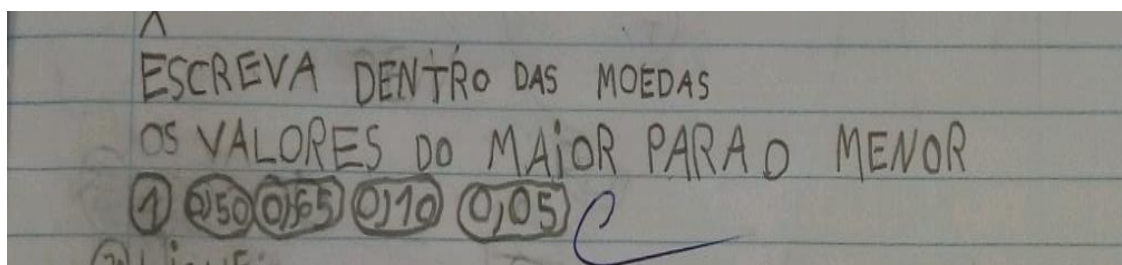 ESCREVA DENTRO DAS MOEDAS
OS VALORES DO MAiOR PARA O MENOR
1 0,50 0,65 0,10 0,05 C